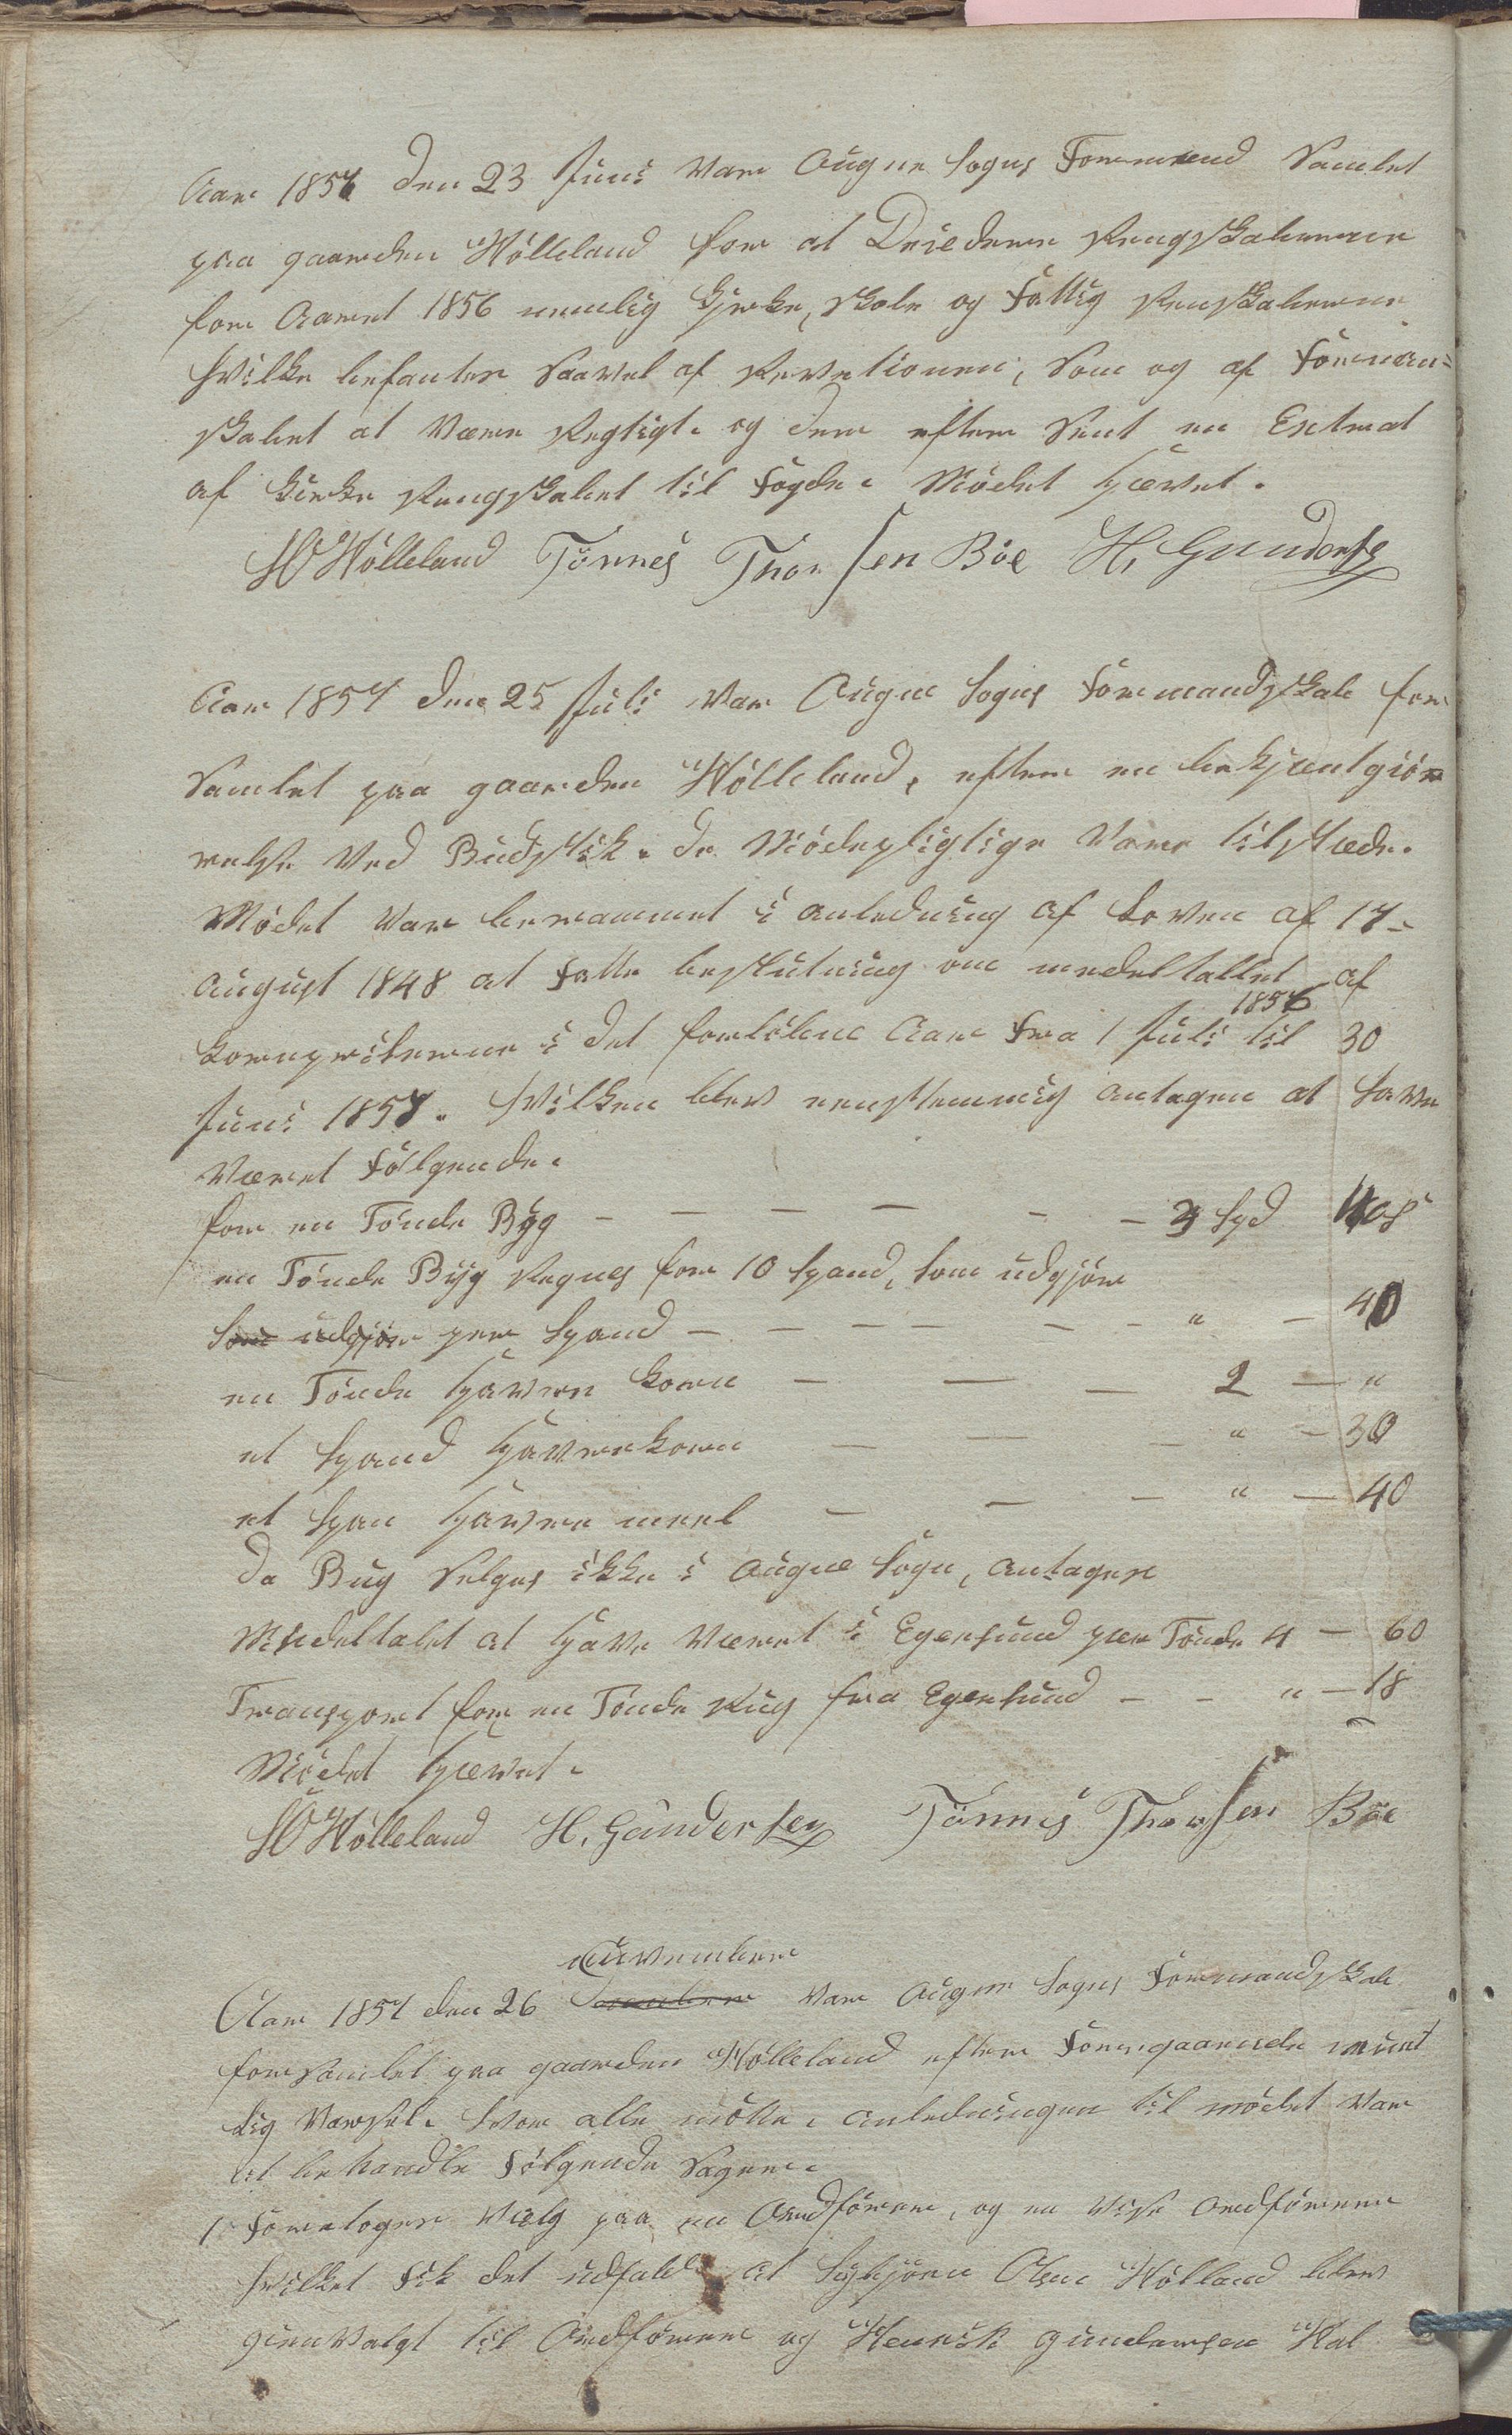 Aar 1857 den 23 Juni var Augne Sogns Formænd Samlet
paa gaarden Hölleland for at Desedere Rengskaberne
for Aaret 1856 nemlig Kjerke, Skole og Fattig Renskaberne
hvilke befantes Saavel af Revetionen, Som og af Forman=
skabet at Være Regtigt. og der efter Sent en Extrat
af Kirke Rengskabet til Fogde. Mödet Hævet.
SO Hölleland Tönnes Thorsen Böe H, Gundersen
Aar 1857 den 25 Juli var Augne Sogns Formandskab for
Samlet paa gaarden Hölleland, efter en bekjentgiör
relse Ved Budstik. de Mödepligtige Vare tilstæde.
Mödet Var beramet i anledning af Loven af 17-
August 1848 at Fatte beslutning om medeltallet af
1856
Kornpriserne i det forlöbne Aar Fra 1 Juli til 30
Juni 1857. Hvilken blev eenstemmig antagen at have
Været Fölgende.
for en Tönde Byg - - - - - - 3 Spd 40 s
en Tönde Byg Regnes for 10 Spand, Som udgjör
Som udgjör per Spand - - - - - - " - 40
en Tönde Havre Korn - - - 2 - "
et Spand Havrekorn - - - " - 30
et Span Havre meel - - - " - 40
da Rug Selges ikke i Augne Sogn, antages
Medeltalet at Have Været i Egersund per Tönde 4 - 60
Transport for en Tönde Rug fra Egersund - - " - 18
Mödet Hævet.
SO Hölleland H. Gundersen Tönnes Thorsen Böe
Nuvember
Aar 1857 den 26 var Augne Sogns Formandskab
forsamlet paa gaarden Hölleland efter Foregaaende munt
lig Varsel. hvor alle mötte. anledningen til mödet Var
at behandle Fölgende Sager.
1 Foretoges Valg paa en Ordförer, og en Vise Ordförer
hvilket Fik det udfald at Sigbjörn Olsen Hölland blev
gjenvalgt til Ordförer og Henrik Gundersen Hal